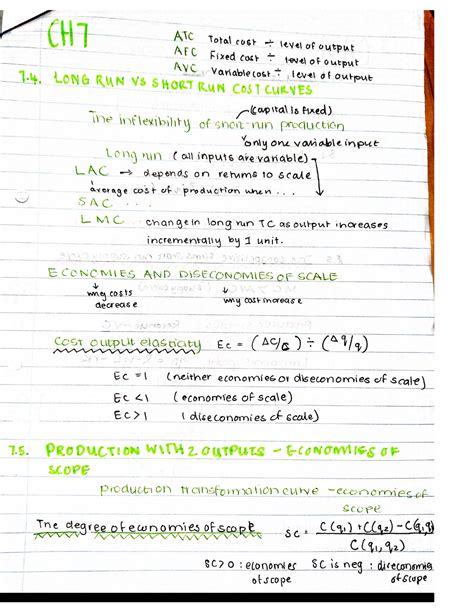 CH7
ATC Total cost ÷ level of output
AFC Fixed cost ÷ level of output
AVC Variable cost ÷ level of output
7.4. LONG RUN VS SHORT RUN COST CURVES
(capital is fixed)
The inflexibility of short-run production
only one variable input
Long run (all inputs are variable)
LAC → depends on returns to scale
average cost of production when ...
SAC ...
LMC change in long run TC as output increases
incrementally by 1 unit.
ECONOMIES AND DISECONOMIES OF SCALE
why costs decrease
why cost increase
Cost output elasticity Ec = (ΔC/C) ÷ (Δq/q)
Ec = 1 (neither economies or diseconomies of scale)
Ec < 1 (economies of scale)
Ec > 1 (diseconomies of scale)
7.5. PRODUCTION WITH 2 OUTPUTS - ECONOMIES OF
SCOPE
production transformation curve - economies of
scope
The degree of economies of scope SC = C(q1) + C(q2) - C(q1,q2)
C(q1,q2)
SC > 0 : economies of scope
SC is neg : direconomies of scope